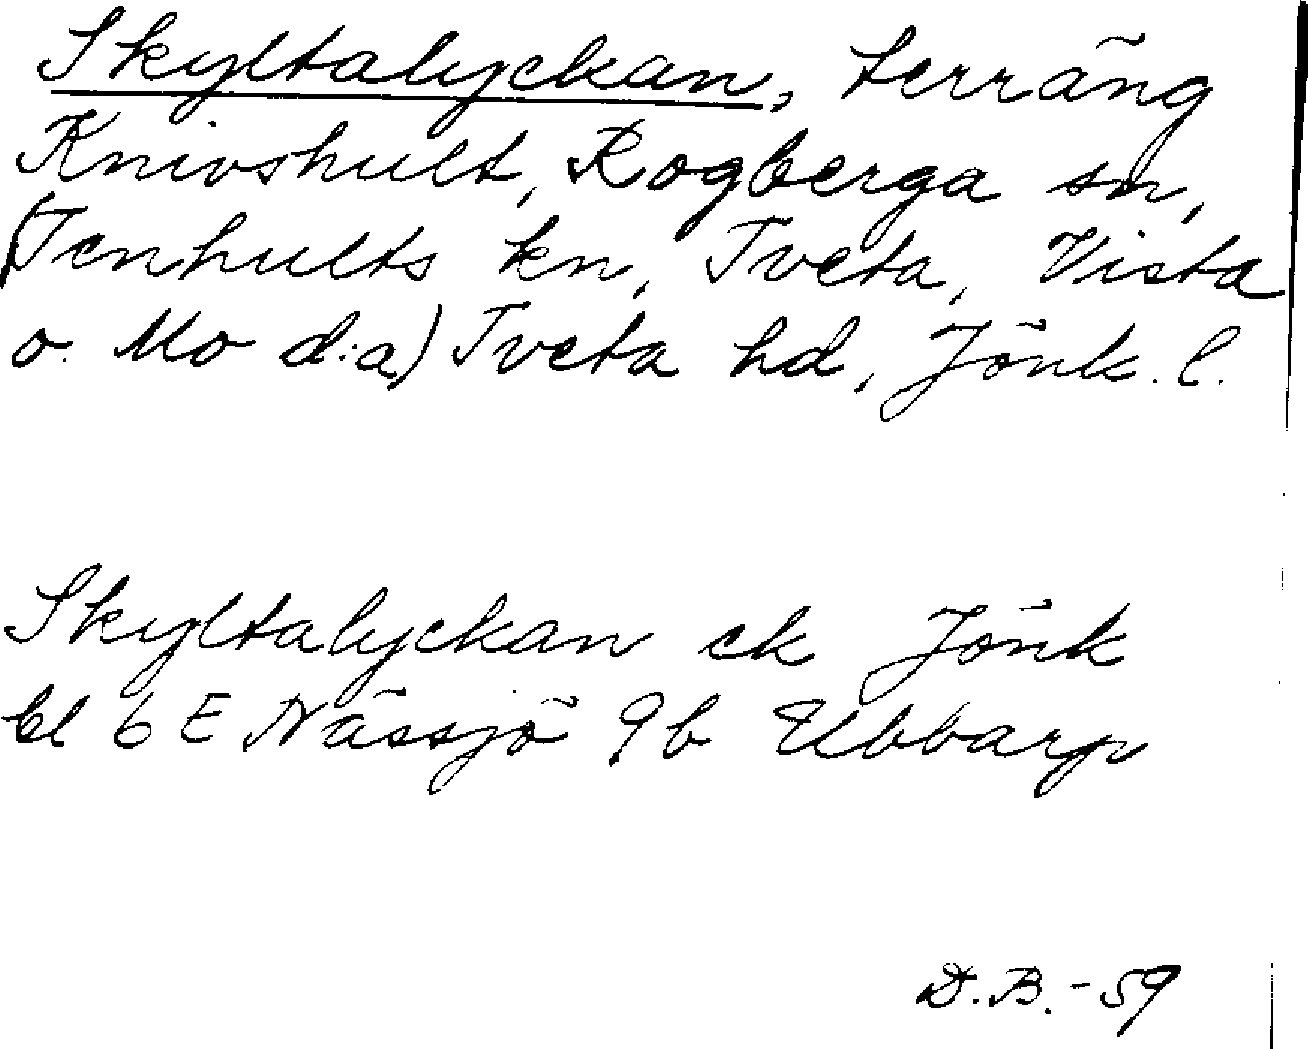 Skyltalyckan, terräng
Knivshult, Rogberga sn,
(Tenhults kn, Tveta, Vista
o. Mo d:a) Tveta hd, Jönk. l.
Skyltalyckan ek Jönk
bl 6 E Nässjö 9b Ubbarp
D.B.-59